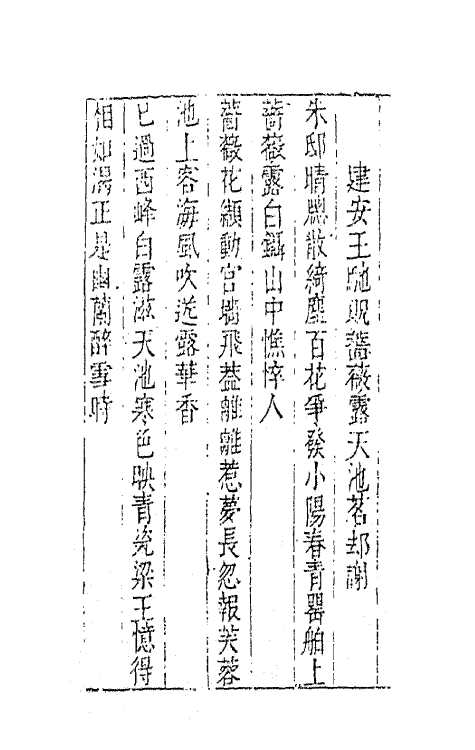 建安王馳貺薔薇露天池茗却謝
朱邸晴牕散綺塵百花爭發小陽春青罌舶上
薔薇露白鑷山中憔悴人
薔薇花纈動宮墻飛葢離離惹夢長忽報芙蓉
池上客海風吹送露華香
已過西峰白露滋天池寒色映青瓷梁王憶得
相如渴正是幽蘭醉雪時